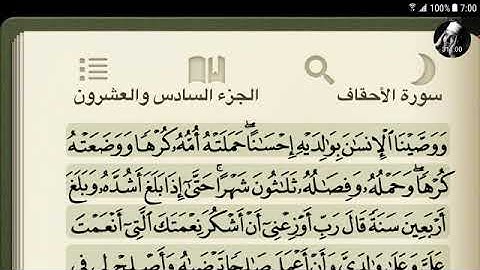 100% 7:00
31:00
سورة الأحقاف
الجزء السادس والعشرون
وَوَصَّيْنَا ٱلْإِنسَٰنَ بِوَٰلِدَيْهِ إِحْسَٰنًا ۖ حَمَلَتْهُ أُمُّهُۥ كُرْهًا وَوَضَعَتْهُ
كُرْهًا ۖ وَحَمْلُهُۥ وَفِصَٰلُهُۥ ثَلَٰثُونَ شَهْرًا ۚ حَتَّىٰٓ إِذَا بَلَغَ أَشُدَّهُۥ وَبَلَغَ
أَرْبَعِينَ سَنَةً قَالَ رَبِّ أَوْزِعْنِىٓ أَنْ أَشْكُرَ نِعْمَتَكَ ٱلَّتِىٓ أَنْعَمْتَ
عَلَىَّ وَعَلَىٰ وَٰلِدَىَّ وَأَنْ أَعْمَلَ صَٰلِحًا تَرْضَىٰهُ وَأَصْلِحْ لِى فِى